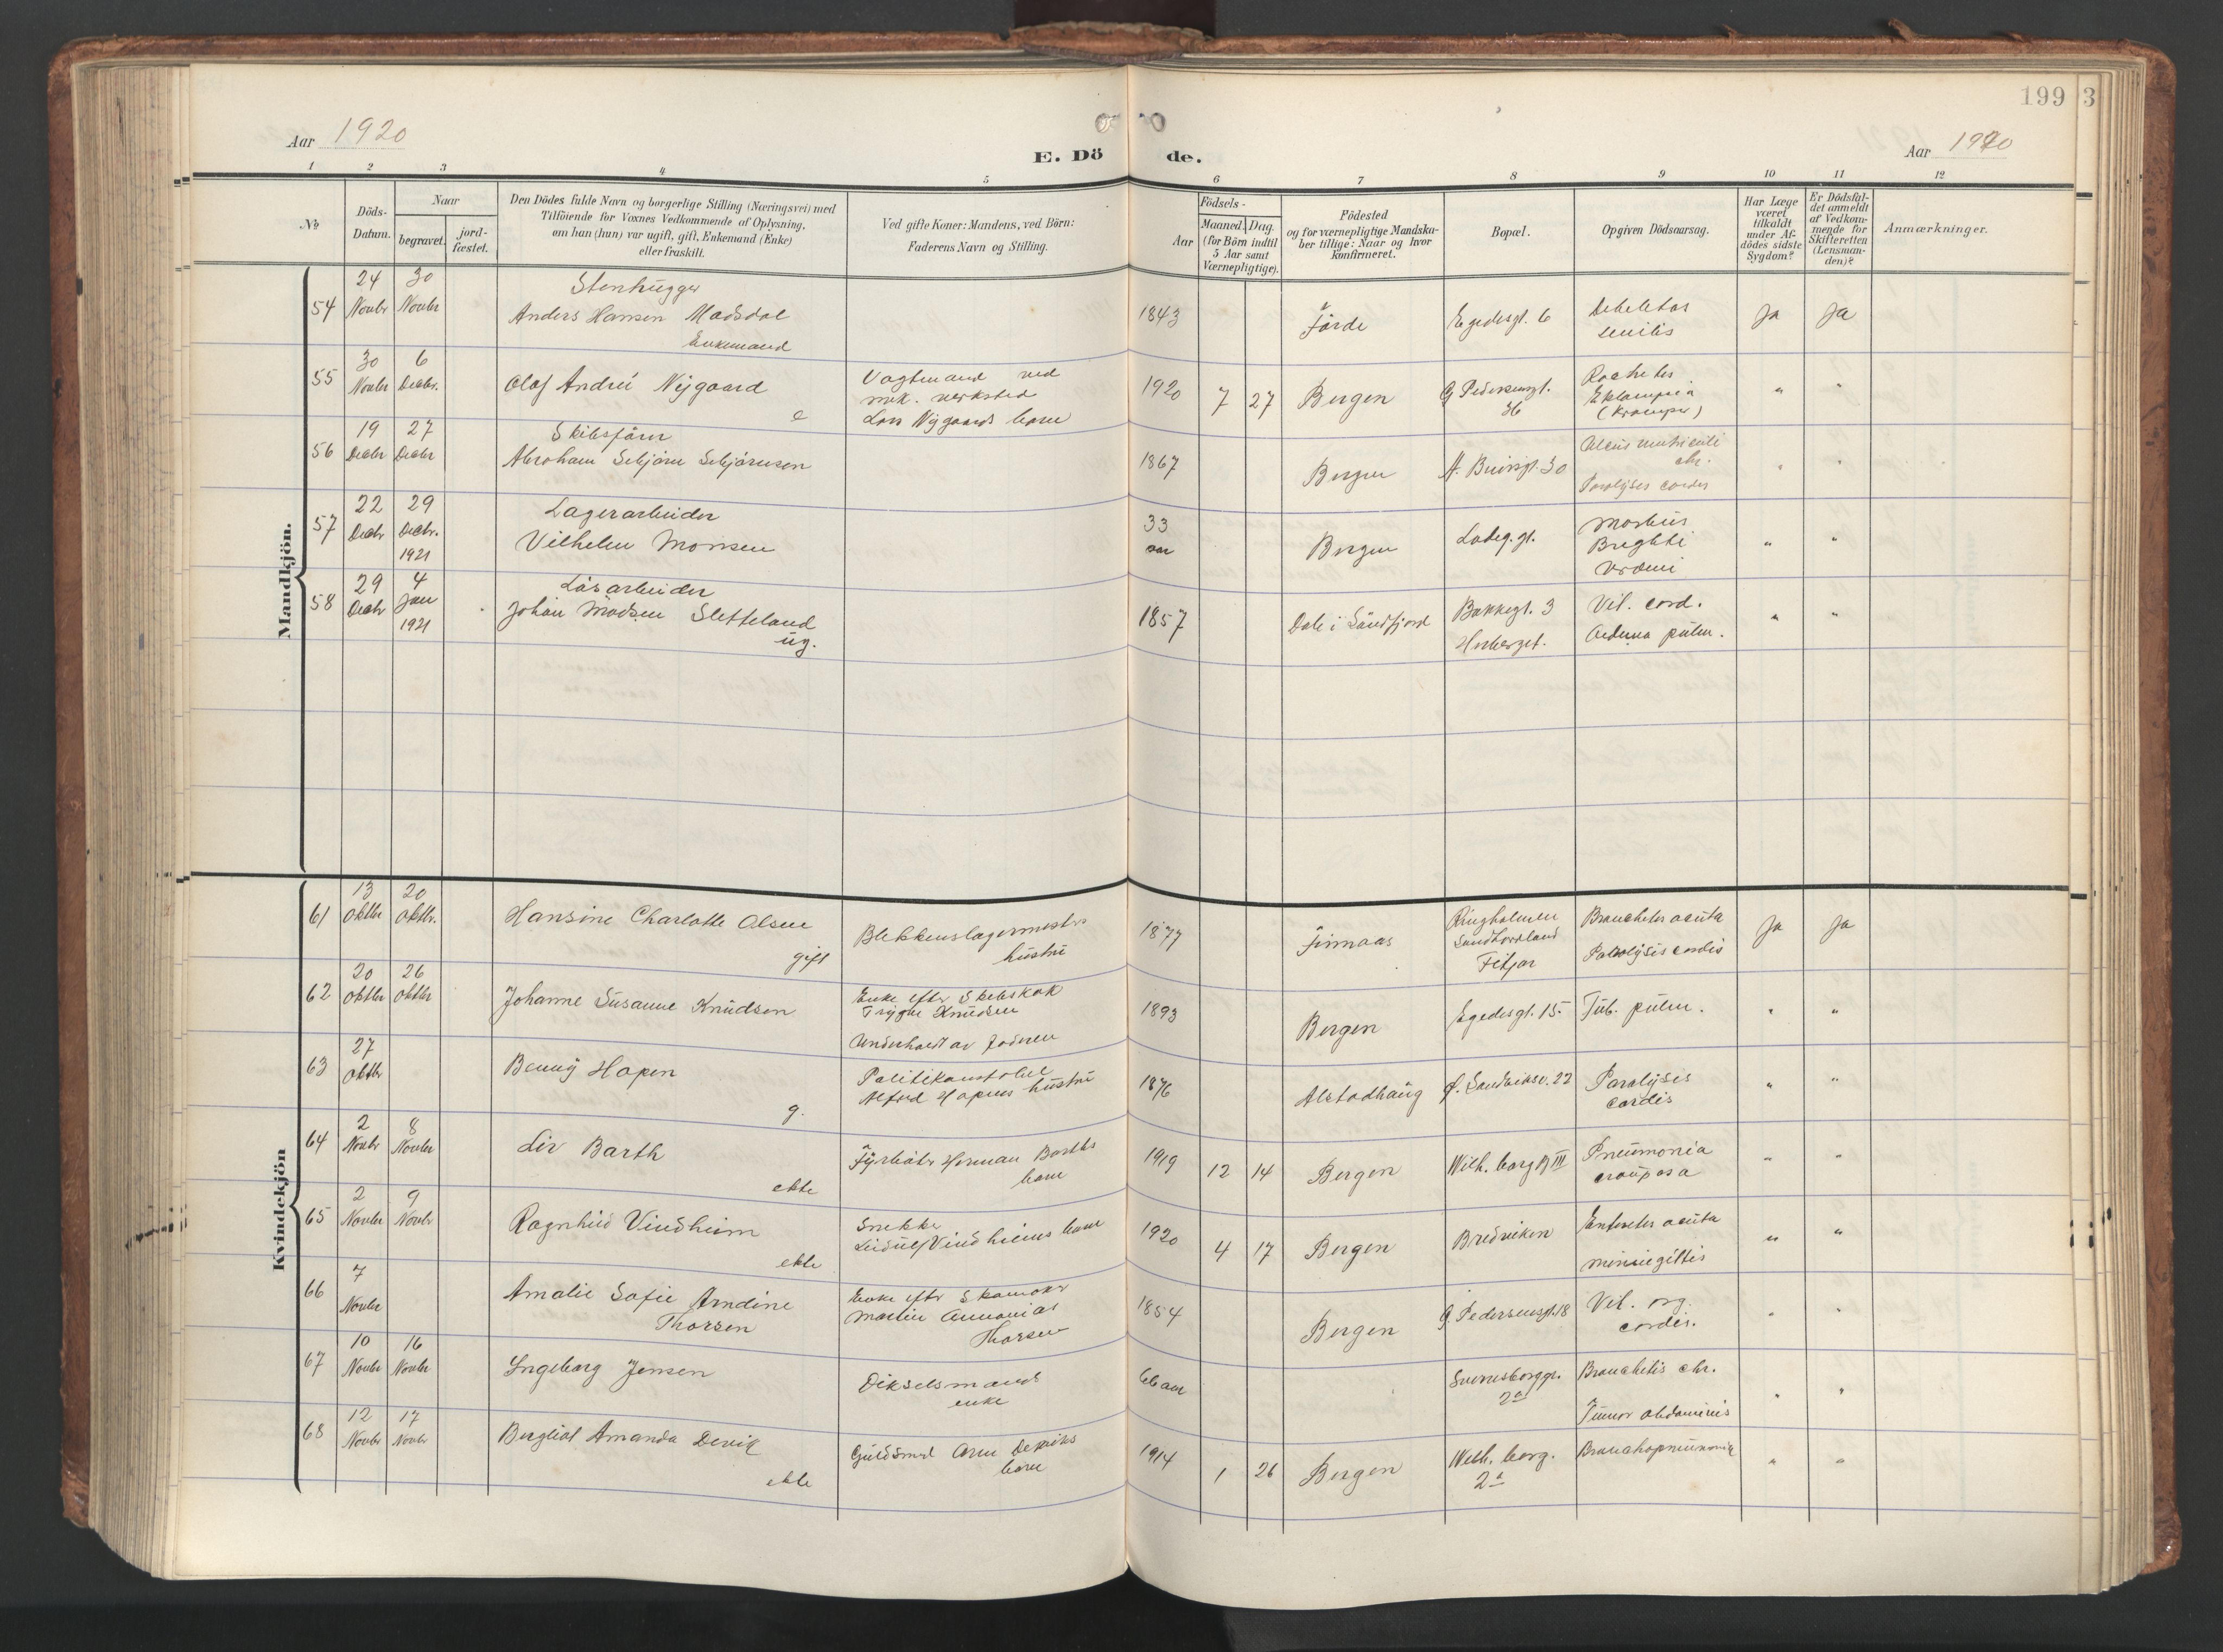 199 3
Aar 1920
E. Dö de.
Aar 1920
1 2 3 4 5 6 7 8 9 10 11 12
No
Döds-
Datum.
Naar
begravet.
jord-
fæstet.
Den Dödes fulde Navn og borgerlige Stilling (Næringsvei) med
Tilföiende for Voxnes Vedkommende af Oplysning,
om han (hun) var ugift, gift, Enkemand (Enke)
eller fraskilt.
Ved gifte Koner: Mandens, ved Börn:
Faderens Navn og Stilling.
Födsels-
Aar
Maaned.
Dag.
(for Börn indtil
5 Aar samt
Værnepligtige).
Födested
og for værnepligtige Mandska-
ber tillige: Naar og hvor
konfirmeret.
Bopæl.
Opgiven Dödsaarsag.
Har Læge
været
tilkaldt
under Af-
dödes sidste
Sygdom?
Er Dödsfal-
det anmeldt
af Vedkom-
mende for
Skifteretten
(Lensman-
den)?
Anmærkninger.
Mandkjön.
54
24 Novbr
30 Novbr
Stenhugger
Anders Hansen Madsdal
Enkemand
1843
Förde
Egedesgt. 6
senilis
Ja
Ja
55
30 Novbr
6 Decbr.
Olaf Andreé Nygaard
e
Vagtmand ved
mek. verksted
Lars Nygaards barn
1920
7
27
Bergen
G Pedersensgt.
36
Rachitis
Eklampsia
(Kramper)
"
"
56
19 Decbr
27 Decbr
Skibsförer
Abraham Sebjörn Sebjörnsen
1867
Bergen
A. Bruinsgt. 30
Ulcus ventriculi
chr.
Paralysis cordis
"
"
57
22 Decbr
29 Decbr.
1921
Lagerarbeider
Vilhelm Monsen
33
aar
Bergen
Ladeg. gt.
Morbus
Brighti
Uræmi
"
"
58
29 Decbr
4 Jan
1921
Lösarbeider
Johan Madsen Sletteland
ug.
1857
Dale i Söndfjord
Bakkegt. 3
Herberget.
Vit. cord.
Oedema pulm.
"
"
Kvindekjön
61
13 Oktbr
20 Oktbr.
Hansine Charlotte Olsen
gift
Blekkenslagermesters
hustru
1877
Finnaas
Ringholmen
Söndhordland
Fitjar
Bronchitis acuta
Paralysis cordis
Ja
Ja
62
20 Oktbr
26 Oktbr
Johanne Susanne Knudsen
Enke efter Skibskok
Trygve Knudsen
Underholdt av Faderen
1893
Bergen
Egedesgt. 15.
Tub. pulm.
"
"
63
27 Oktbr
Benny Hopen
g.
Politikonstabel
Alfred Hopens hustru
1876
Alstadhaug
Ø. Sandviksv. 22
Paralysis
cordis
"
"
64
2 Novbr
8 Novbr
Liv Barth
ekte
Fyrböter Herman Barths
barn
1919
12
14
Bergen
Wilh. borg B III
Pneumonia
crouposa
"
"
65
2 Novbr
9 Novbr
Ragnhild Vindheim
ekte
Snekker
Leidulf Vindheims barn
1920
4
17
Bergen
Bredviken
Enteritis acuta
"
"
66
7 Novbr
Amalie Sofie Arndine
Thorsen
Enke efter Skomaker
Martin Annanias
Thorsen
1854
Bergen
G. Pedersensgt. 18
Vit. org.
cordis.
"
"
67
10 Novbr
16 Novbr
Ingeborg Jensen
Dikselsmands
enke
66 aar
Sverresborggt.
2a
Bronchitis chr.
Tumor abdominis
"
"
68
12 Novbr
17 Novbr
Bergliot Amanda Devik
ekte
Guldsmed Arne Deviks
barn
1914
1
26
Bergen
Wilh. borg.
2a
Bronchopneumonia
"
"